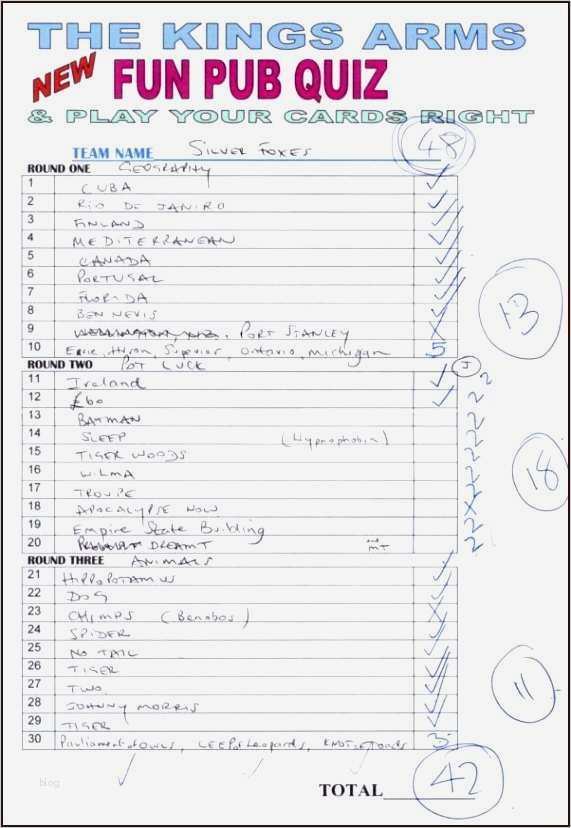 THE KINGS ARMS
NEW FUN PUB QUIZ
& PLAY YOUR CARDS RIGHT
TEAM NAME SILVER FOXES 48
ROUND ONE GEOGRAPHY
1 CUBA
2 RIO DE JANIRO
3 FINLAND
4 MEDITERRANEAN
5 CANADA
6 PORTUGAL
7 FLORIDA
8 BEN NEVIS
9 PORT STANLEY
10 Erie, Huron, Superior, Ontario, Michigan 5
13
ROUND TWO POT LUCK J
11 Ireland 2
12 £60 2
13 BATMAN 2
14 SLEEP (Hypnophobia) 2
15 TIGER WOODS 2
16 WILMA 2
17 TROUPE 2
18 APOCALYPSE NOW X
19 Empire State Building 2
20 DREAMT and MT 2
18
ROUND THREE ANIMALS
21 HIPPOPOTAMUS
22 DOG
23 CHIMPS (Benobos)
24 SPIDER
25 NO TAIL
26 TIGER
27 TWO
28 JOHNNY MORRIS
29 TIGER
30 Parliament of owls, LEEP of Leopards, KNOT of Toads 3
11
TOTAL 42
blog